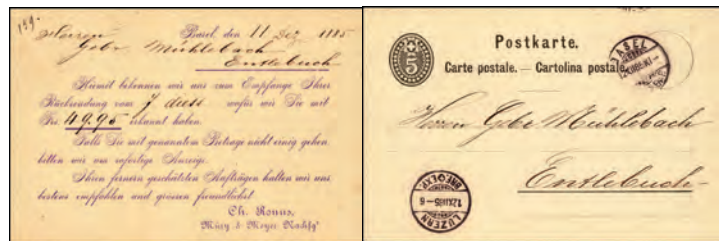 199.
Basel, den 11 Dez 1885
Herren
Gebr. Mühlebach
Entlebuch
Hiemit bekennen wir uns zum Empfange Ihrer
Rücksendung vom 7 duss wofür wir Sie mit
Frs 49.95 erkannt haben.
Falls Sie mit genanntem Betrage nicht einig gehen
bitten wir um sofortige Anzeige.
Ihren fernern geschätzten Aufträgen halten wir uns
bestens empfohlen und grüssen freundlichst
Ch. Ronus,
Müry & Meyer Nachfgr
5
Postkarte.
Carte postale. — Cartolina postale.
BASEL
Herren Gebr Mühlebach
Entlebuch
LUZERN
12.XII.85-6
BRF.EXP.